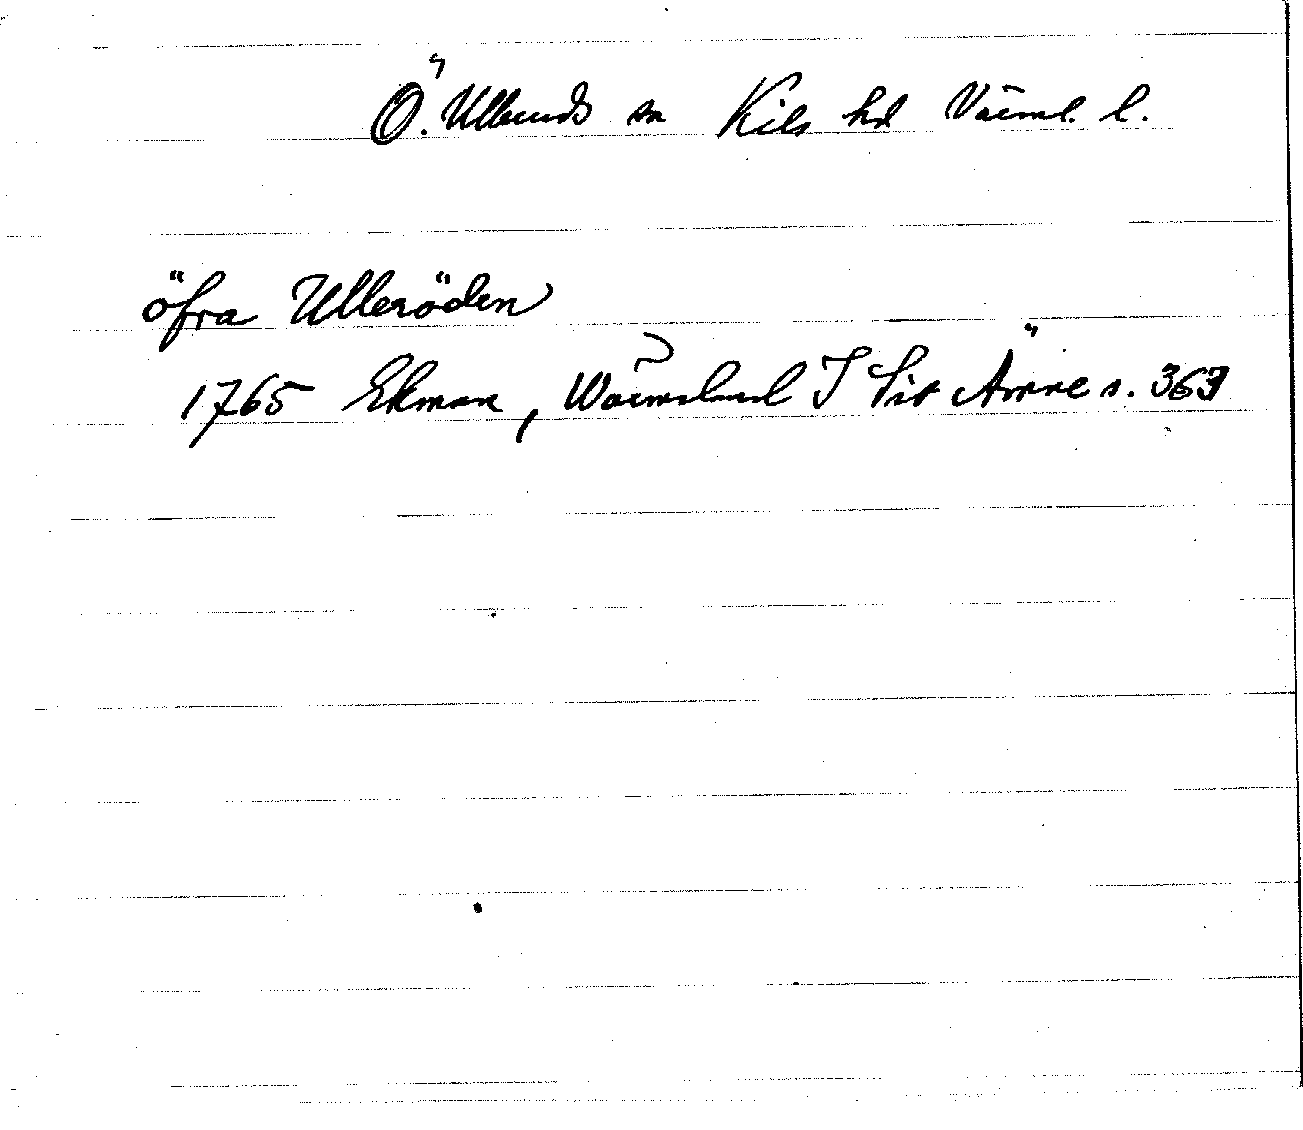 Ö. Ulleruds sn Kils hd Värml. l.
öfra Ulleröden
1765 Ekman, Wärmeland I Sit Ämne s. 363